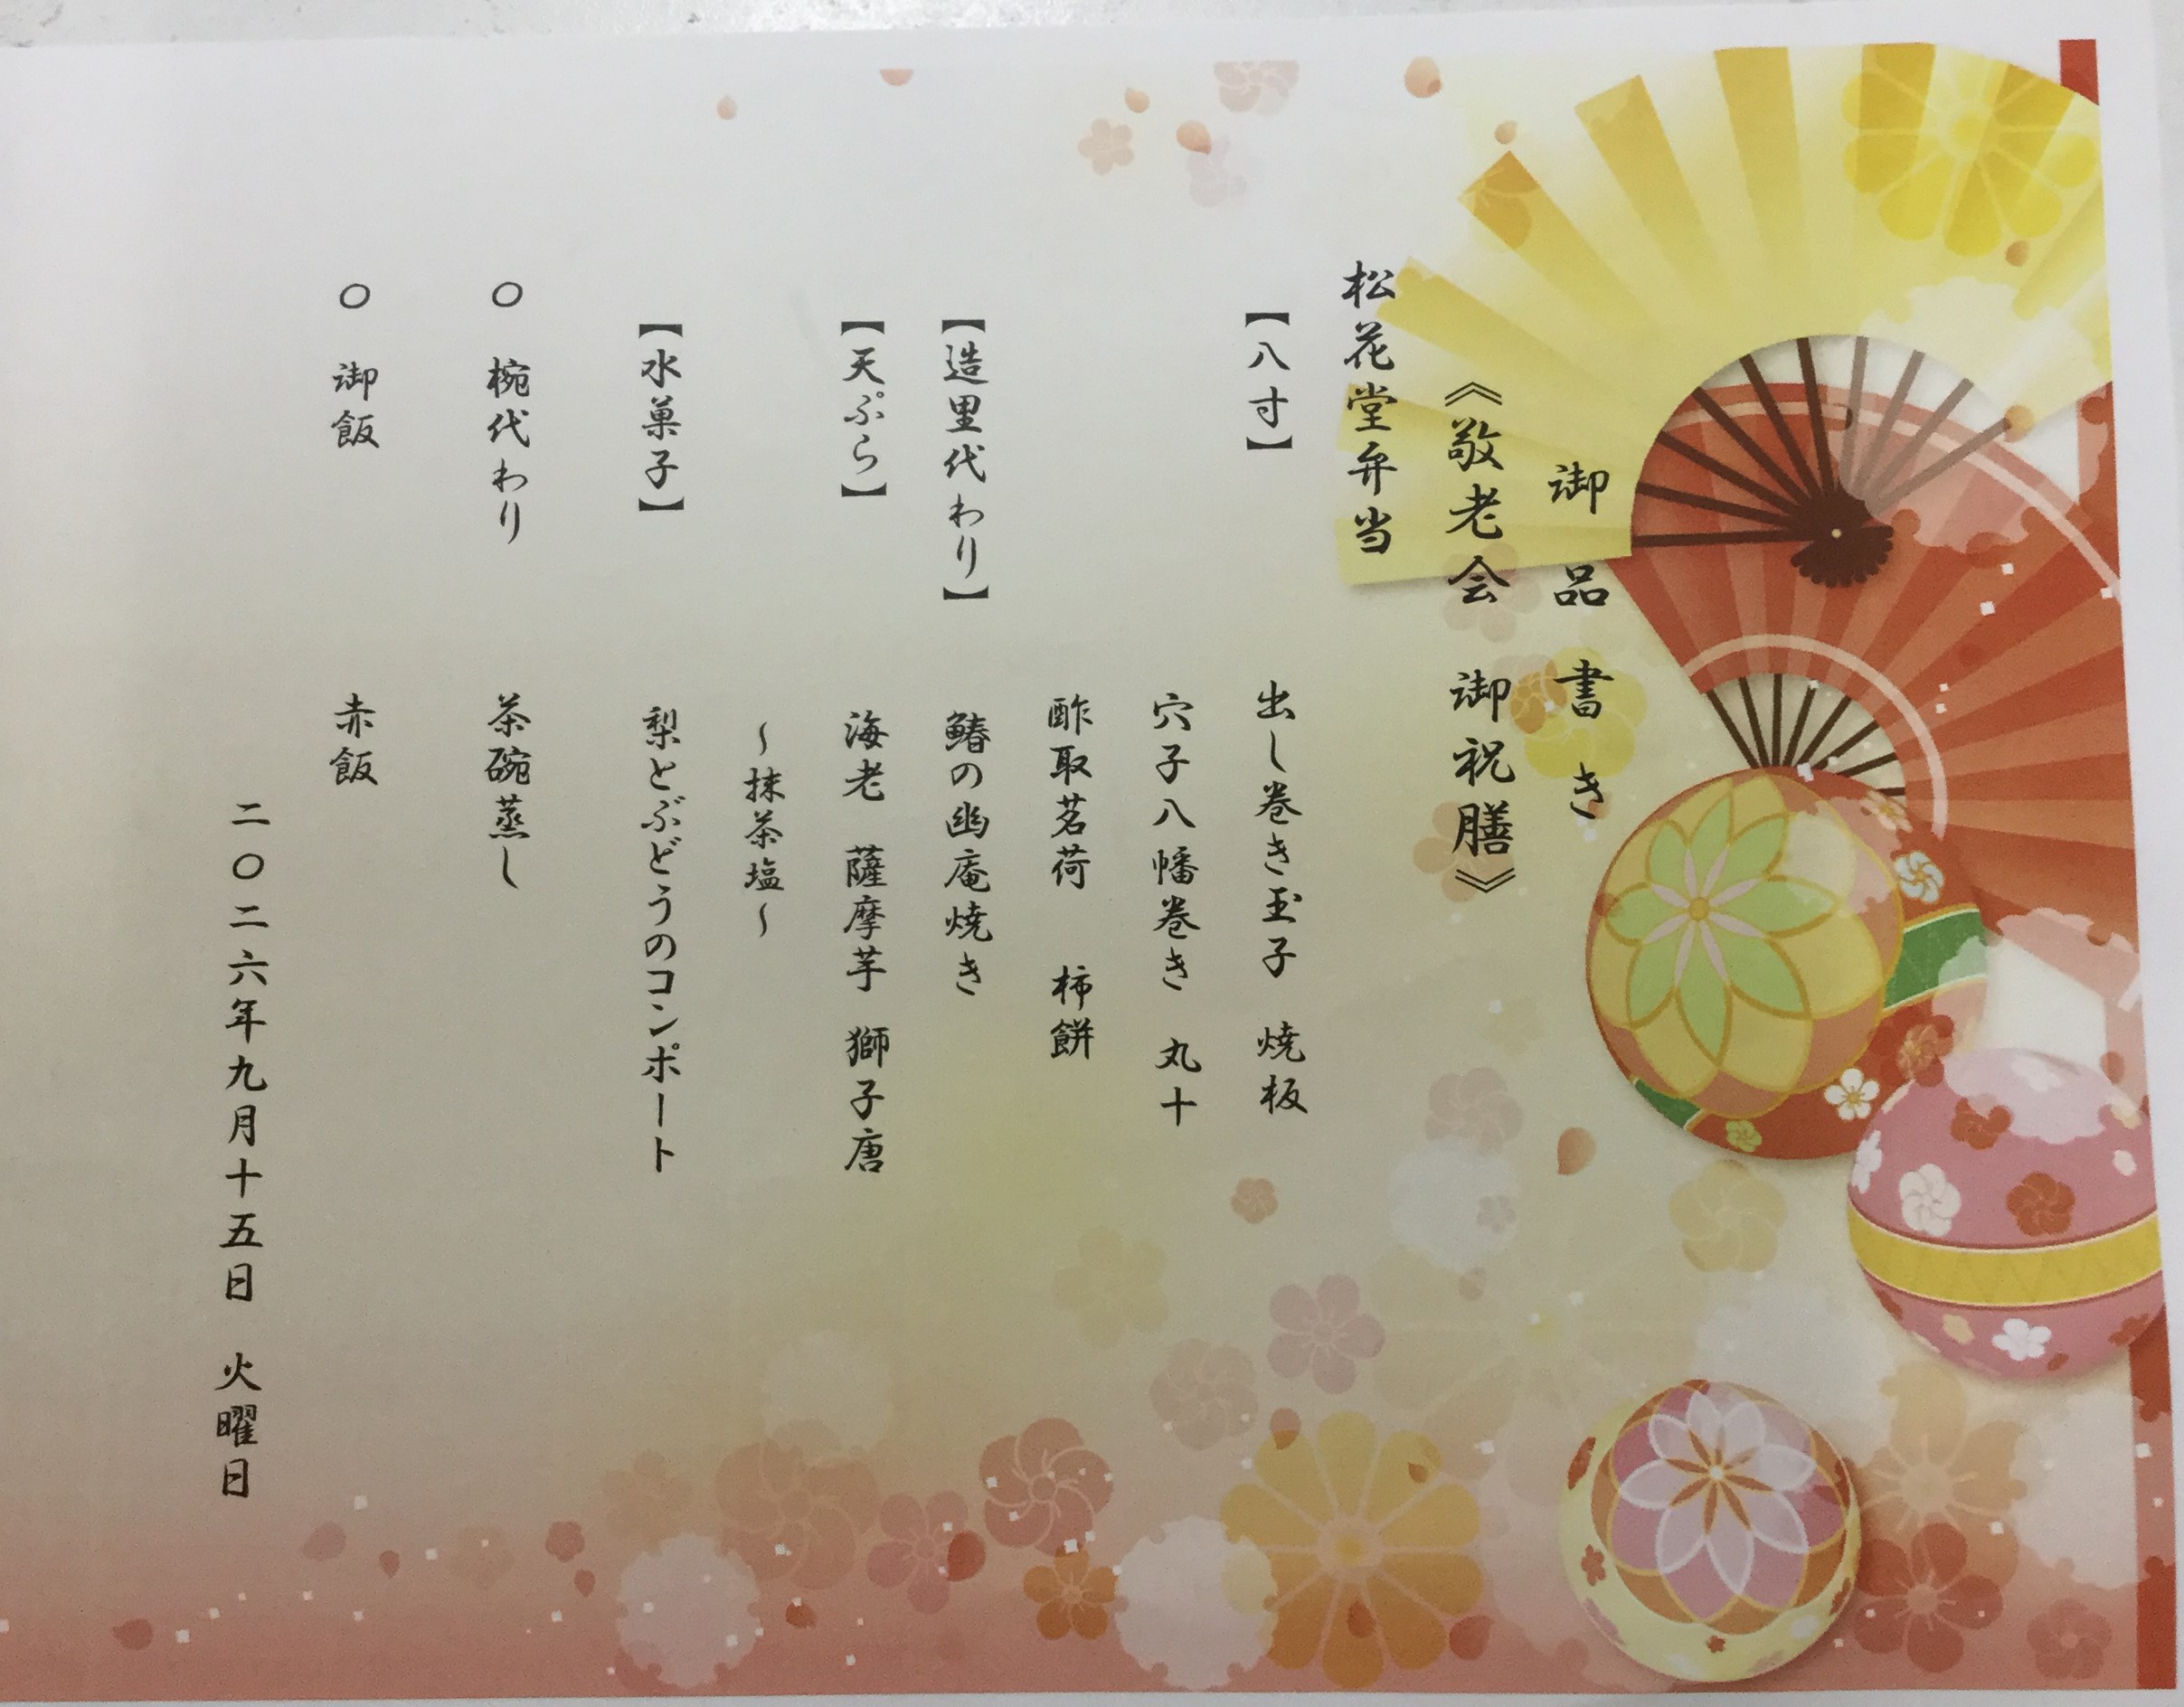 御品書き
《敬老会　御祝膳》
松花堂弁当
【八寸】　出し巻き玉子　焼板
穴子八幡巻き　丸十
酢取茗荷　柿餅
【造里代わり】　鰆の幽庵焼き
【天ぷら】　海老　薩摩芋　獅子唐
～抹茶塩～
【水菓子】　梨とぶどうのコンポート
〇　椀代わり　茶碗蒸し
〇　御飯　赤飯
二〇二六年九月十五日　火曜日